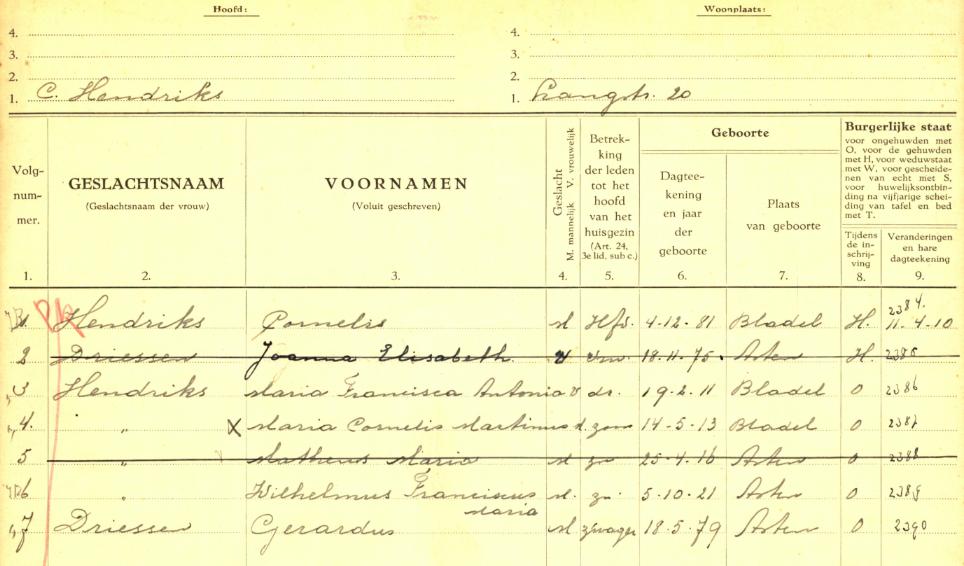 Hoofd: Woonplaats:
4. 4.
3. 3.
2. 2.
1. C. Hendriks 1. Langstr. 20
Volg-
num-
mer.
1.
GESLACHTSNAAM
(Geslachtsnaam der vrouw)
2.
VOORNAMEN
(Voluit geschreven)
3.
Geslacht
M. mannelijk V. vrouwelijk
4.
Betrek-
king
der leden
tot het
hoofd
van het
huisgezin
(Art. 24,
3e lid, sub c.)
5.
Geboorte
Dagtee-
kening
en jaar
der
geboorte
6.
Plaats
van geboorte
7.
Burgerlijke staat
voor ongehuwden met
O, voor de gehuwden
met H, voor weduwstaat
met W, voor gescheide-
nen van echt met S,
voor huwelijksontbin-
ding na vijfjarige schei-
ding van tafel en bed
met T.
Tijdens
de in-
schrij-
ving
8.
Veranderingen
en hare
dagteekening
9.
1 Hendriks Cornelis M Hfd. 4-12-81 Bladel H. 2384. 11-4-10
2 Driessen Joanna Elisabeth v 18-11-75 Asten H. 2385
3 Hendriks Maria Francisca Antonia v dr. 19-2-11 Bladel O 2386
4. " X Maria Cornelis Martinus zoon 14-5-13 Bladel O 2387
5 " Matheus Maria M zn 25-4-16 Asten O 2388
6 " Wilhelmus Franciscus M. zn. 5-10-21 Asten O 2389
Maria
7 Driessen Gerardus M zwager 18-5-79 Asten O 2390